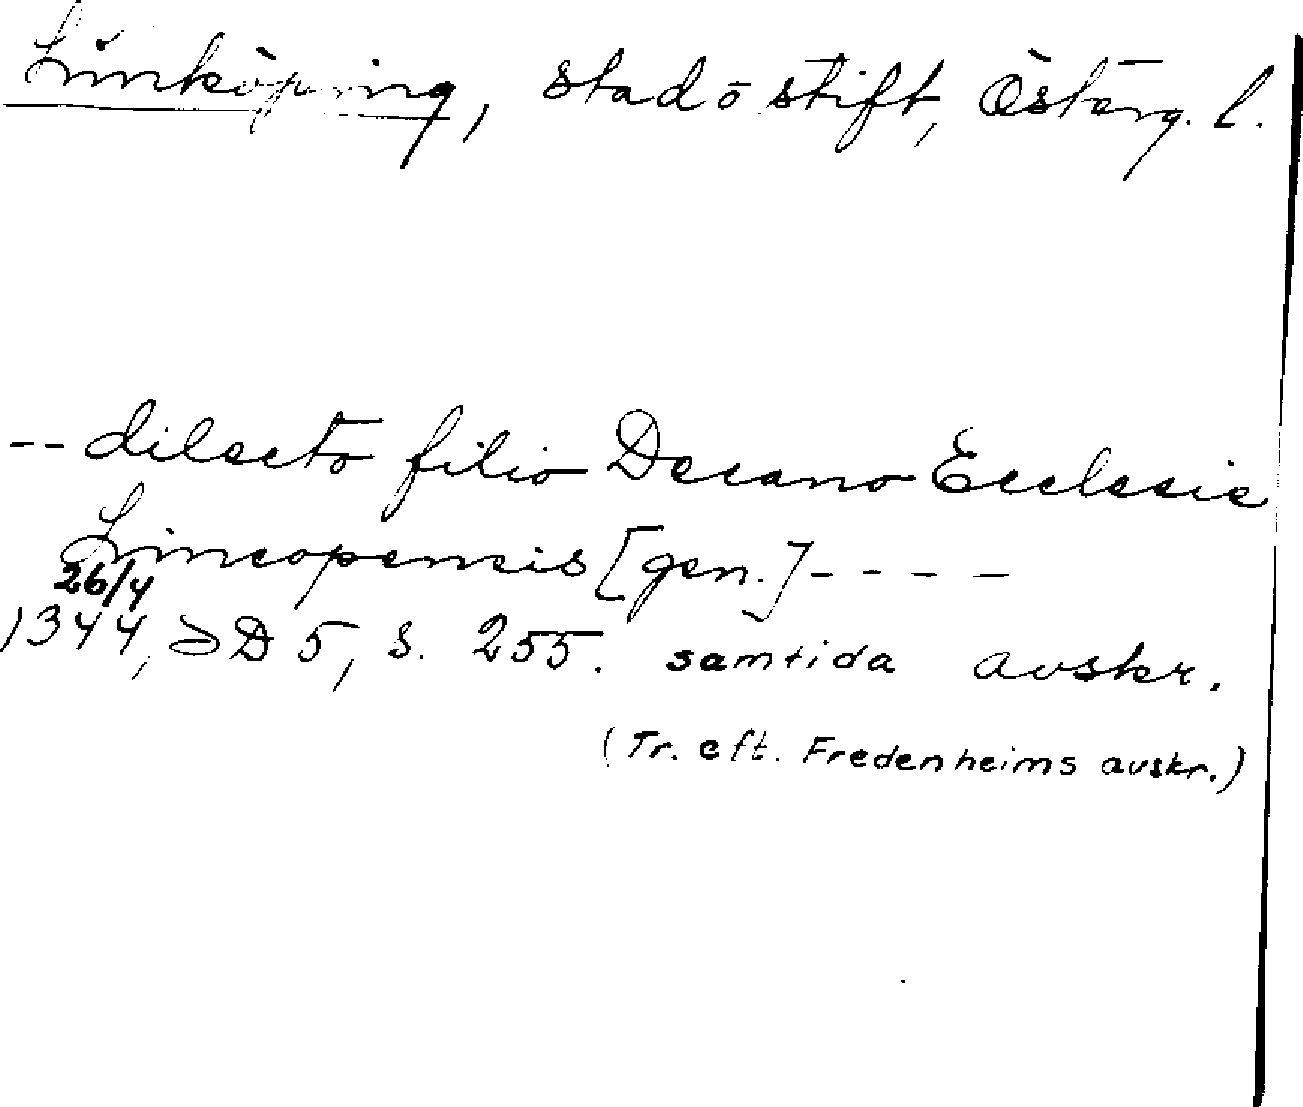 Linköping, stad o stift, Österg. l.
-- dilecto filio Decano Ecclesie
Lincopensis [gen.] - - - -
26/4
1344, SD 5, s. 255. samtida avskr.
(Tr. eft. Fredenheims avskr.)